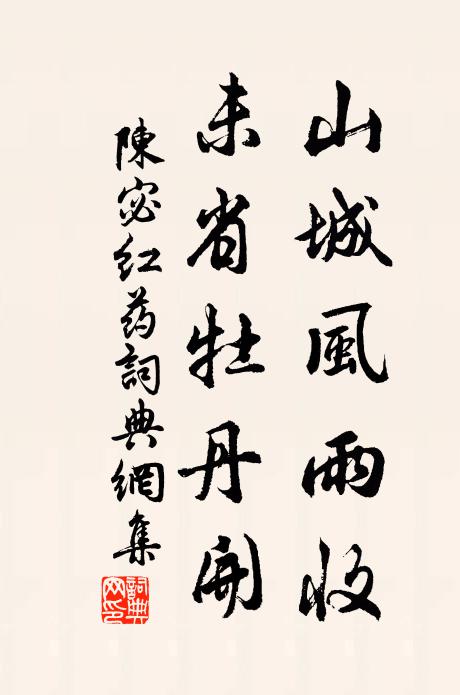 山城風雨收
未省牡丹開
陳宓红药詞典網集
詞典網印